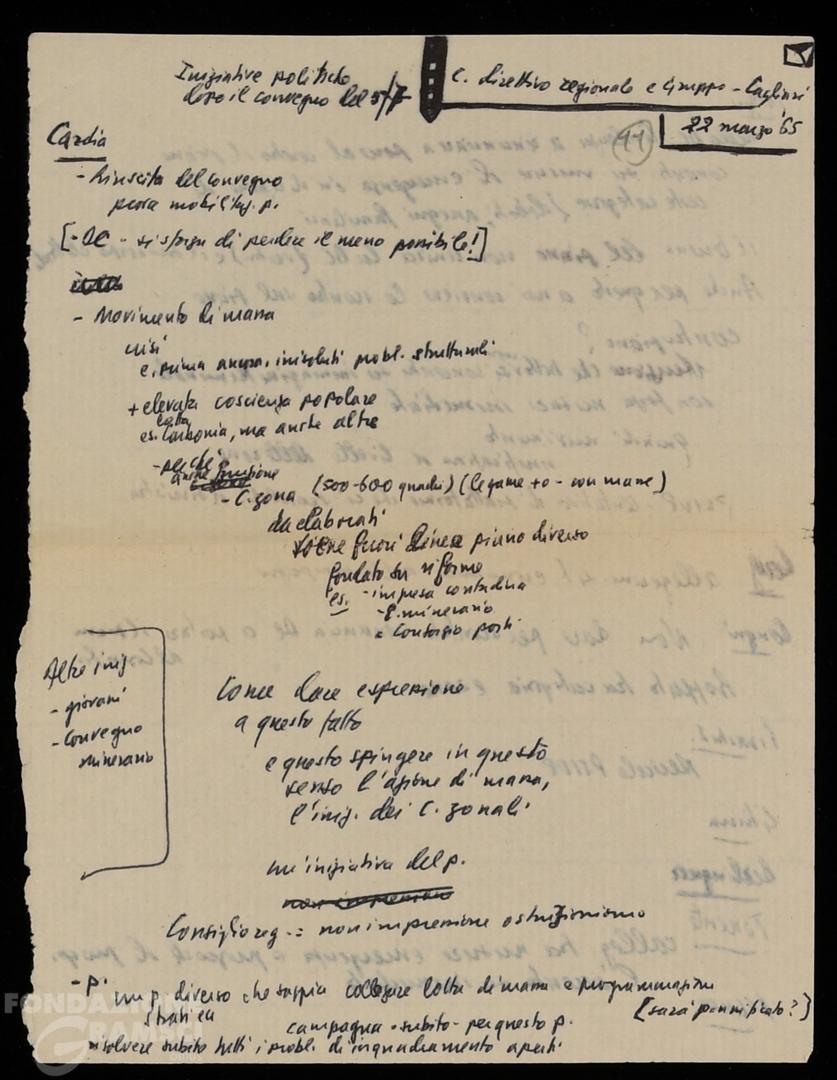 Iniziative politiche
dopo il convegno del 5/7
C. direttivo regionale e Gruppo - Cagliari
22 marzo '65
(11)
Cardia
- Riuscita del convegno
mobilitaz. p.
[- DC - si sforza di perdere il meno possibile!]
- Movimento di massa
crisi
e, prima ancora, irrisoluti probl. strutturali
+ elevata coscienza popolare
lotta
es. Carbonia, ma anche altre
- perché?
anche
- C. zona (500-600 quadri) (legame + o - con masse)
da elaborati
viene fuori linea piano diverso
fondato su riforme
es. - impresa contadina
- E. minerario
- Consorzio porti
Altre iniz
- giovani
- Convegno
minerario
Come dare espressione
a questo fatto
e questo spingere in questo
senso l'azione di massa,
l'iniz. dei C. zonali
un'iniziativa del p.
Consiglio reg. = non impressione ostruzionismo
- p.
un p. diverso che sappia collegare lotta di massa e programmazione
[sarà pianificato?]
campagna - subito - per questo p.
risolvere subito tutti i probl. di inquadramento aperti
FONDAZIONE
GRAMSCI